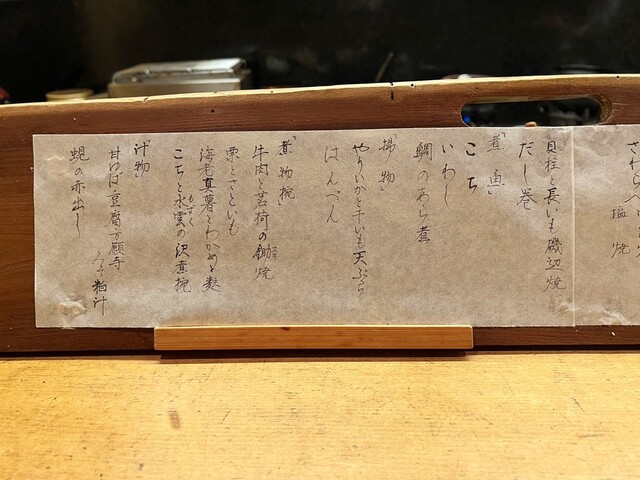 塩焼
貝柱と長いも磯辺焼
だし巻
「煮魚」
こち
いわし
鯛のあら煮
「揚物」
やりいかと干いも天ぷら
はんぺん
「煮物椀」
牛肉と茗荷の鋤焼
栗とさといも
海老真薯とわかめ麩
こちと水雲の沢煮椀
もずく
「汁物」
豆腐万願寺
粕汁
蜆の赤出し